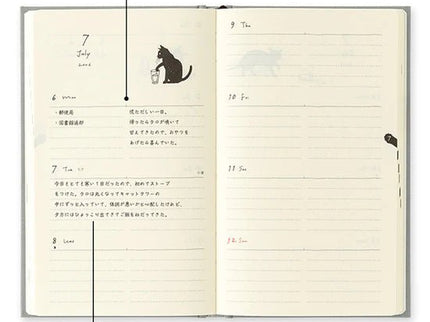 7
July
6 Mon
・郵便局
・図書館返却
慌ただしい一日。
帰ったらクロが鳴いて
甘えてきたので、おやつを
あげたら喜んでいた。
7 Tue
今日はとても寒い1日だったので、初めてストーブ
をつけた。クロは丸くなってキャットタワーの
中にずっと入っていて、体調が悪いかと心配したけれど、
夕方にはひょっこり出てきてご飯をねだってきた。
8 Wed
9 Thu
10 Fri
11 Sat
12 Sun
7